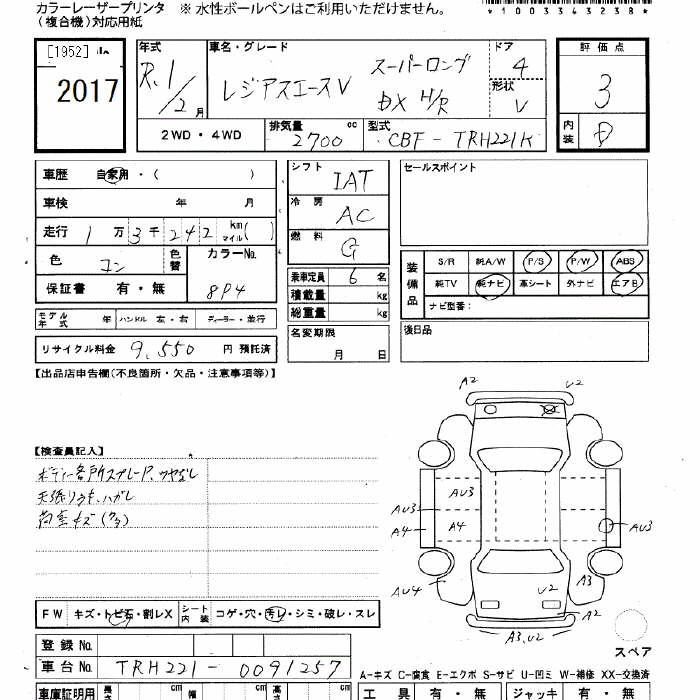 カラーレーザープリンタ ※ 水性ボールペンはご利用いただけません。
(複合機)対応用紙
*1003343238*
[1952]
2017
年式 R.1/2月
車名・グレード レジアスエースV スーパーロング DX H/R
ドア 4
形状 V
評価点 3
内装 D
2WD・4WD
排気量 2700 cc
型式 CBF-TRH221K
車歴 自家用・( )
車検 年 月
走行 1万3千242 km マイル( )
色 コン 色替
カラーNo. 8P4
保証書 有・無
シフト IAT
冷房 AC
燃料 G
乗車定員 6 名
積載量 kg
総重量 kg
名変期限
月 日
セールスポイント
装備品 S/R 純A/W P/S P/W ABS
純TV 純ナビ 革シート 外ナビ エアB
ナビ型番：
後日品
モデル年式 年 ハンドル 左・右 ディーラー・並行
リサイクル料金 9,550 円 預託済
【出品店申告欄(不良箇所・欠品・注意事項等)】
【検査員記入】
ボディー各所スプレーP、ツヤなし
天張りウキ、ハガレ
荷室キズ(クラ)
A2 U2
AU3
A4
AU3
A4
AU3
AU4
U2
A3
A2
A3,U2
スペア
FW キズ・トビ石・割レX シート内装 コゲ・穴・汚レ・シミ・破レ・スレ
登録No.
車台No. TRH221-0091257
A-キズ C-腐食 E-エクボ S-サビ U-凹ミ W-補修 XX-交換済
車庫証明用 長さ cm 幅 cm 高さ cm
工具 有・無 ジャッキ 有・無